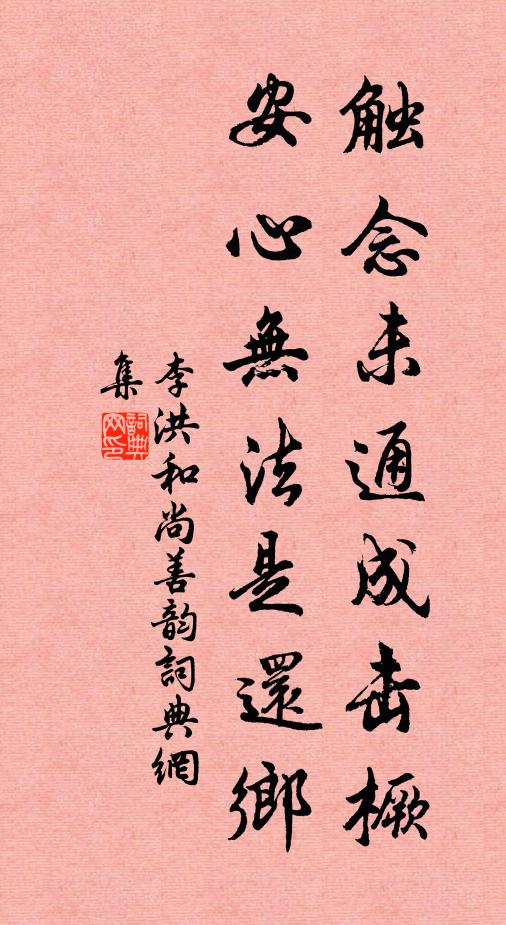 触念未通成击橛
安心無法是還鄉
李洪和尚善韵詞典網
集
詞典
网印